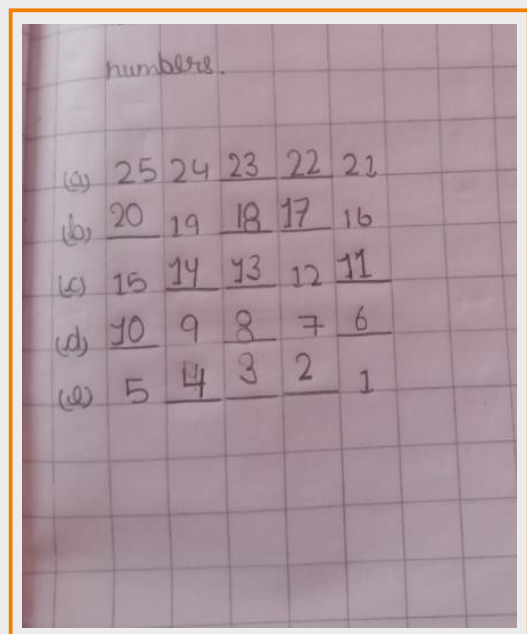 numbers.
(a) 25 24 23 22 21
(b) 20 19 18 17 16
(c) 15 14 13 12 11
(d) 10 9 8 7 6
(e) 5 4 3 2 1